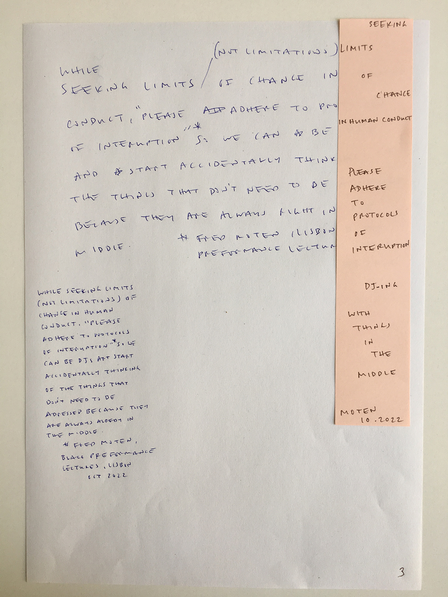 (NOT LIMITATIONS)
WHILE
SEEKING LIMITS / OF CHANGE IN
CONDUCT, "PLEASE ADHERE TO PRO
OF INTERRUPTION"* SO WE CAN BE
AND START ACCIDENTALLY THINK
THE THINGS THAT DIDN'T NEED TO BE
BECAUSE THEY ARE ALWAYS RIGHT IN
MIDDLE.
* FRED MOTEN (LISBON
PREFERMANCE LECTUR
WHILE SEEKING LIMITS
(NOT LIMITATIONS) OF
CHANGE IN HUMAN
CONDUCT, "PLEASE
ADHERE TO PROTOCOLS
OF INTERRUPTION"* SO WE
CAN BE DJs START
ACCIDENTALLY THINKING
OF THE THINGS THAT
DIDN'T NEED TO BE
BECAUSE THEY
ARE ALWAYS IN
THE MIDDLE
* FRED MOTEN,
BLACK PREFERMANCE
LECTURES, LISBON
OCT 2022
SEEKING
LIMITS
OF
CHANGE
IN HUMAN CONDUCT
PLEASE
ADHERE
TO
PROTOCOLS
OF
INTERRUPTION
DJ-ING
WITH
THINGS
IN
THE
MIDDLE
MOTEN
10.2022
3